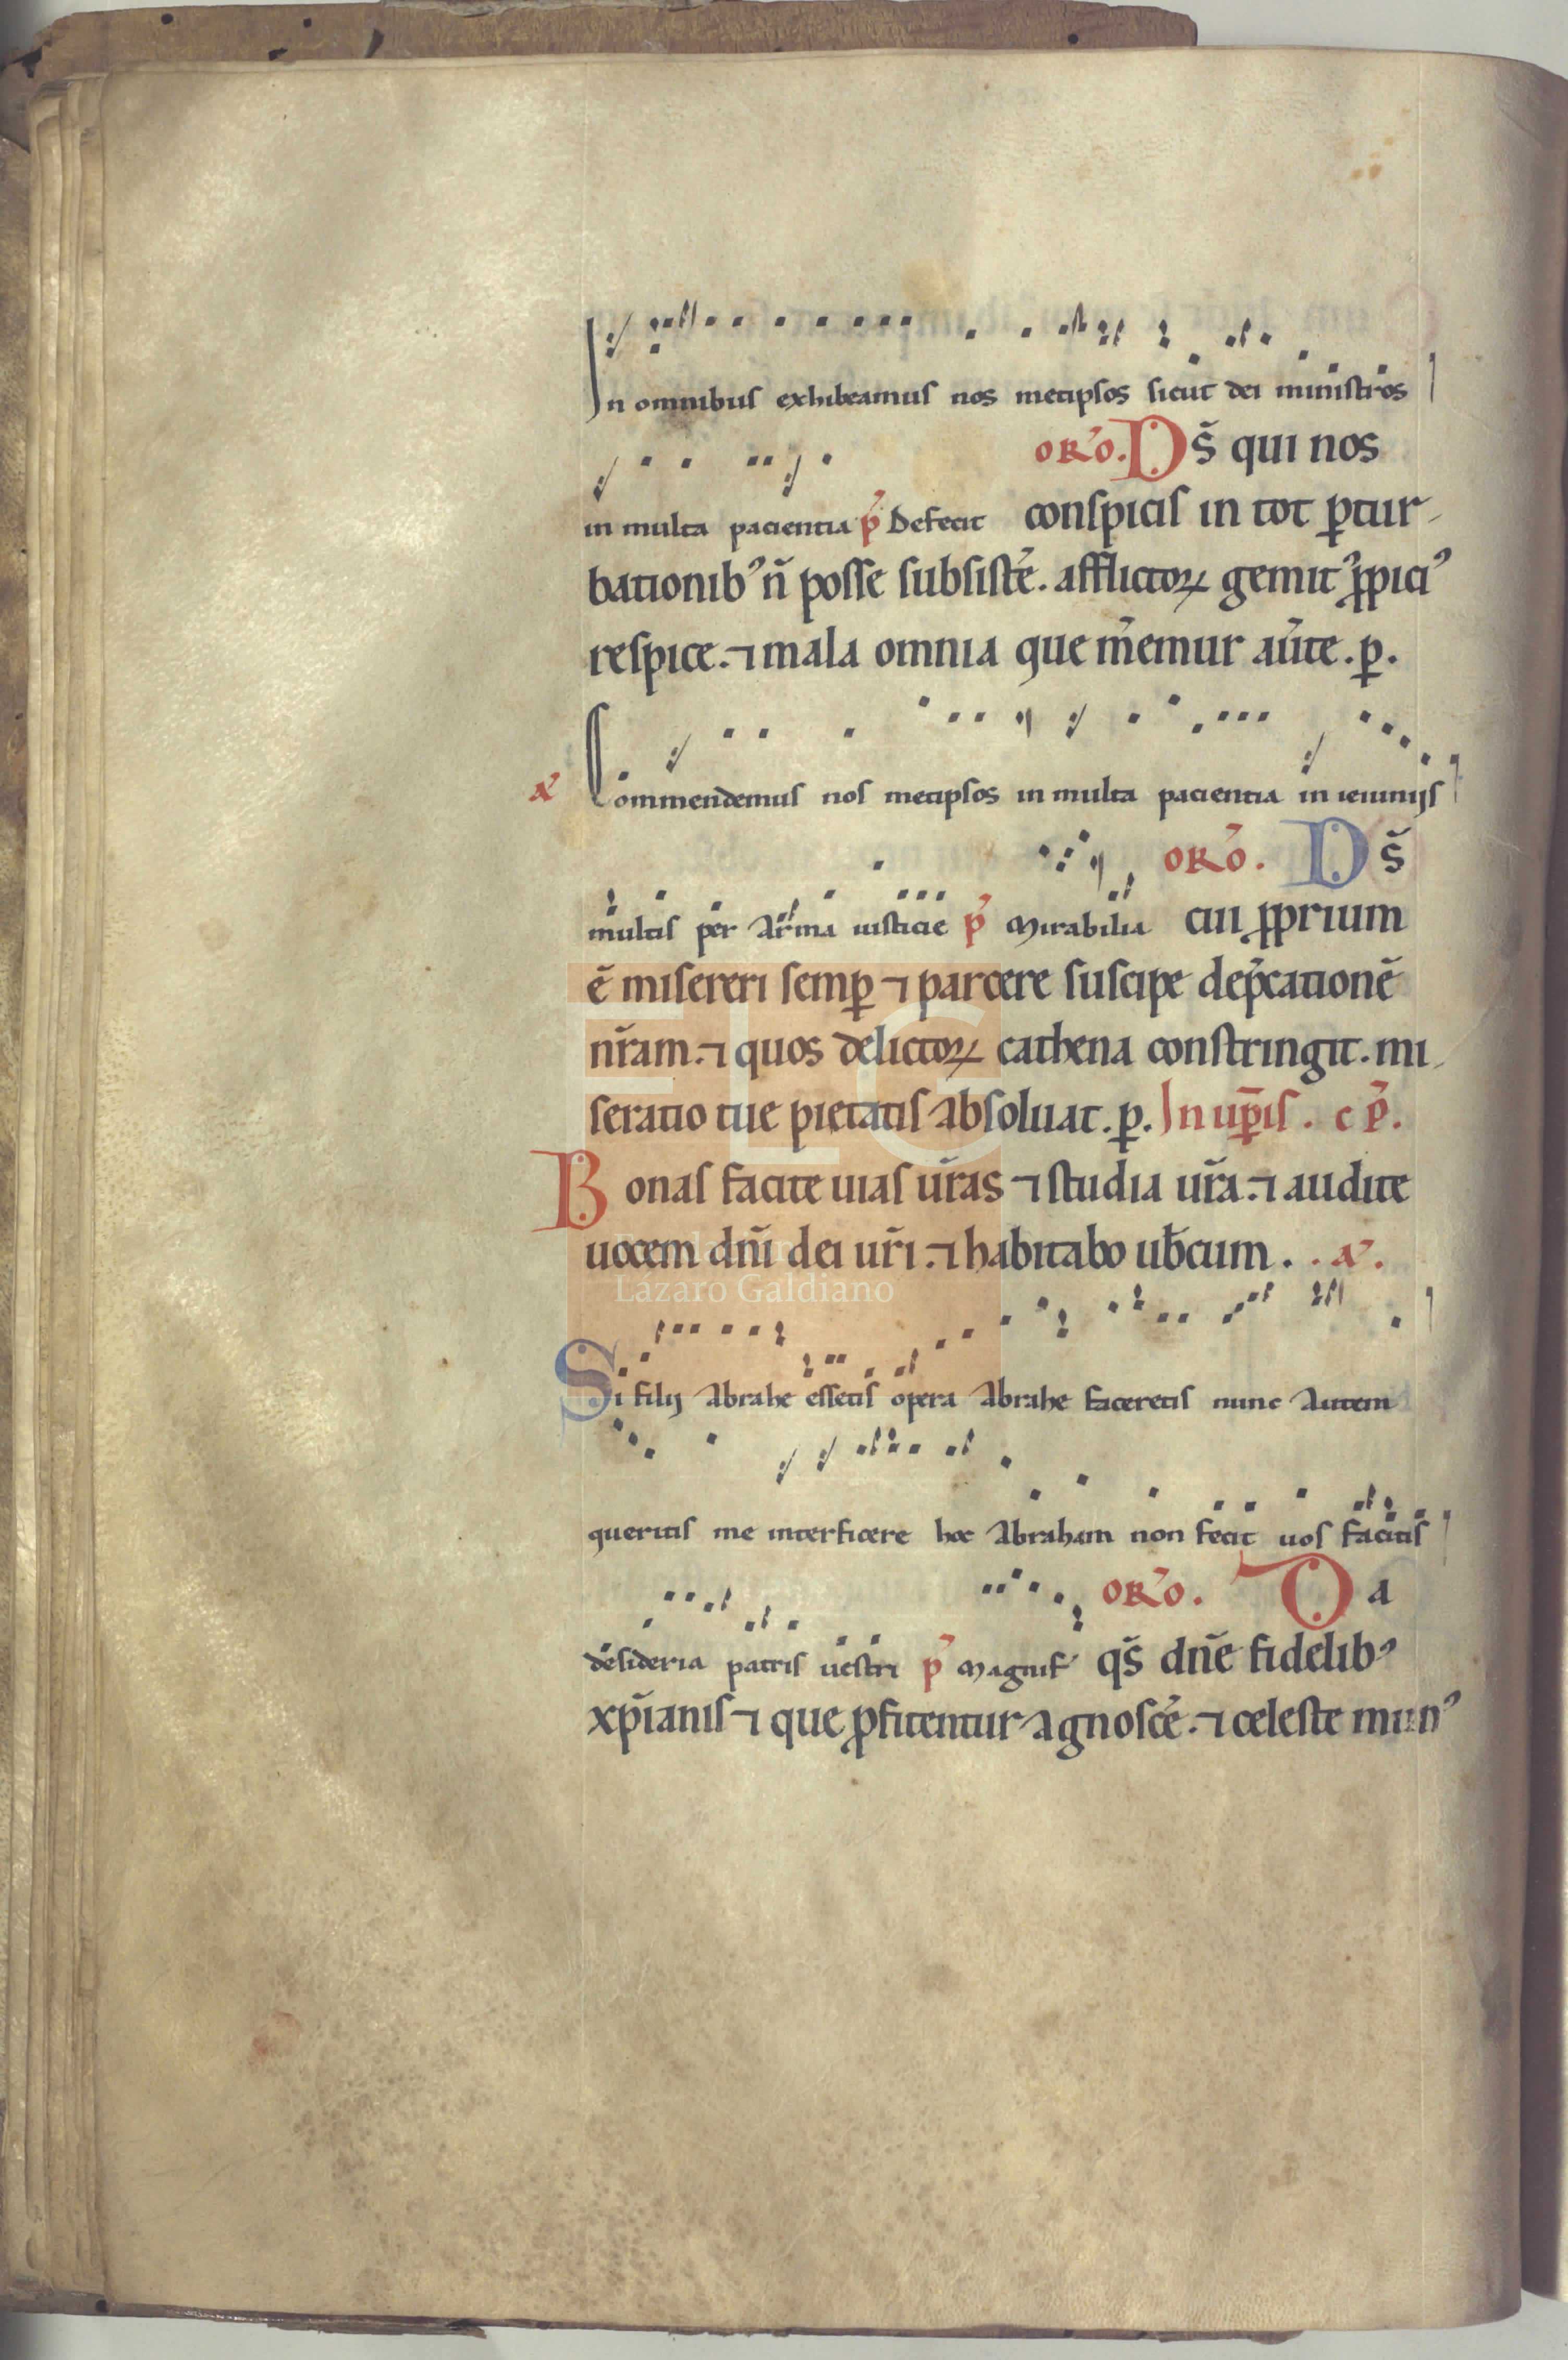 In omnibus exhibeamus nos metipsos sicut dei ministros
oRo. Ds̄ qui nos
in multa pacientia p̄ Defecit conspicis in tot ꝑtur
bationibꝰ n̄ posse subsistē. afflictoꝝ gemitꝰ ꝓpiciꝰ
respice. ⁊ mala omnia que m̄emur au̅te. ꝑ.
a᷑ Commendemus nos metipsos in multa pacientia in ieiunijs
oRo. Ds̄
multis per arma iusticie p̄ Mirabilia cui ꝓprium
ē misereri semꝑ ⁊ parcere suscipe dep̄cationē
nr̄am. ⁊ quos delictoꝝ cathena constringit. mi
seratio tue pietatis absoluat. ꝑ. In uꝑis. c p̄.
Bonas facite uias ur̄as ⁊ studia ur̄a. ⁊ audite
uocem dn̄i dei ur̄i. ⁊ habitabo ub̄cum. . a᷑.
Si filij Abrahe essetis opera Abrahe faceretis nunc autem
queritis me interficere hoc Abraham non fecit uos facitis
oRo. Da
desideria patris uestri p̄ Magnif qs̄ dn̄e fidelibꝰ
xp̄ianis ⁊ que ꝓfitentur agnoscē. ⁊ celeste munꝰ
FLG
Lázaro Galdiano